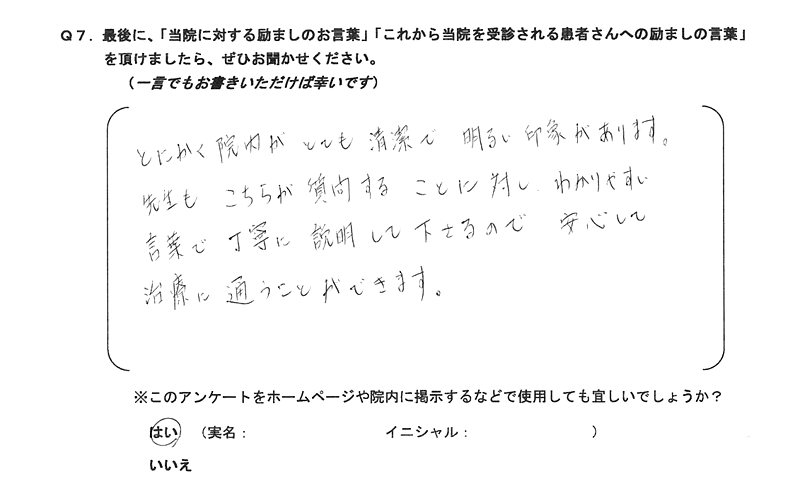 Q7．最後に、「当院に対する励ましのお言葉」「これから当院を受診される患者さんへの励ましの言葉」
を頂けましたら、ぜひお聞かせください。
（一言でもお書きいただけば幸いです）
とにかく院内がとても清潔で明るい印象があります。
先生もこちらが質問することに対し、わかりやすい
言葉で丁寧に説明して下さるので安心して
治療に通うことができます。
※このアンケートをホームページや院内に掲示するなどで使用しても宜しいでしょうか？
はい （実名： イニシャル： ）
いいえ